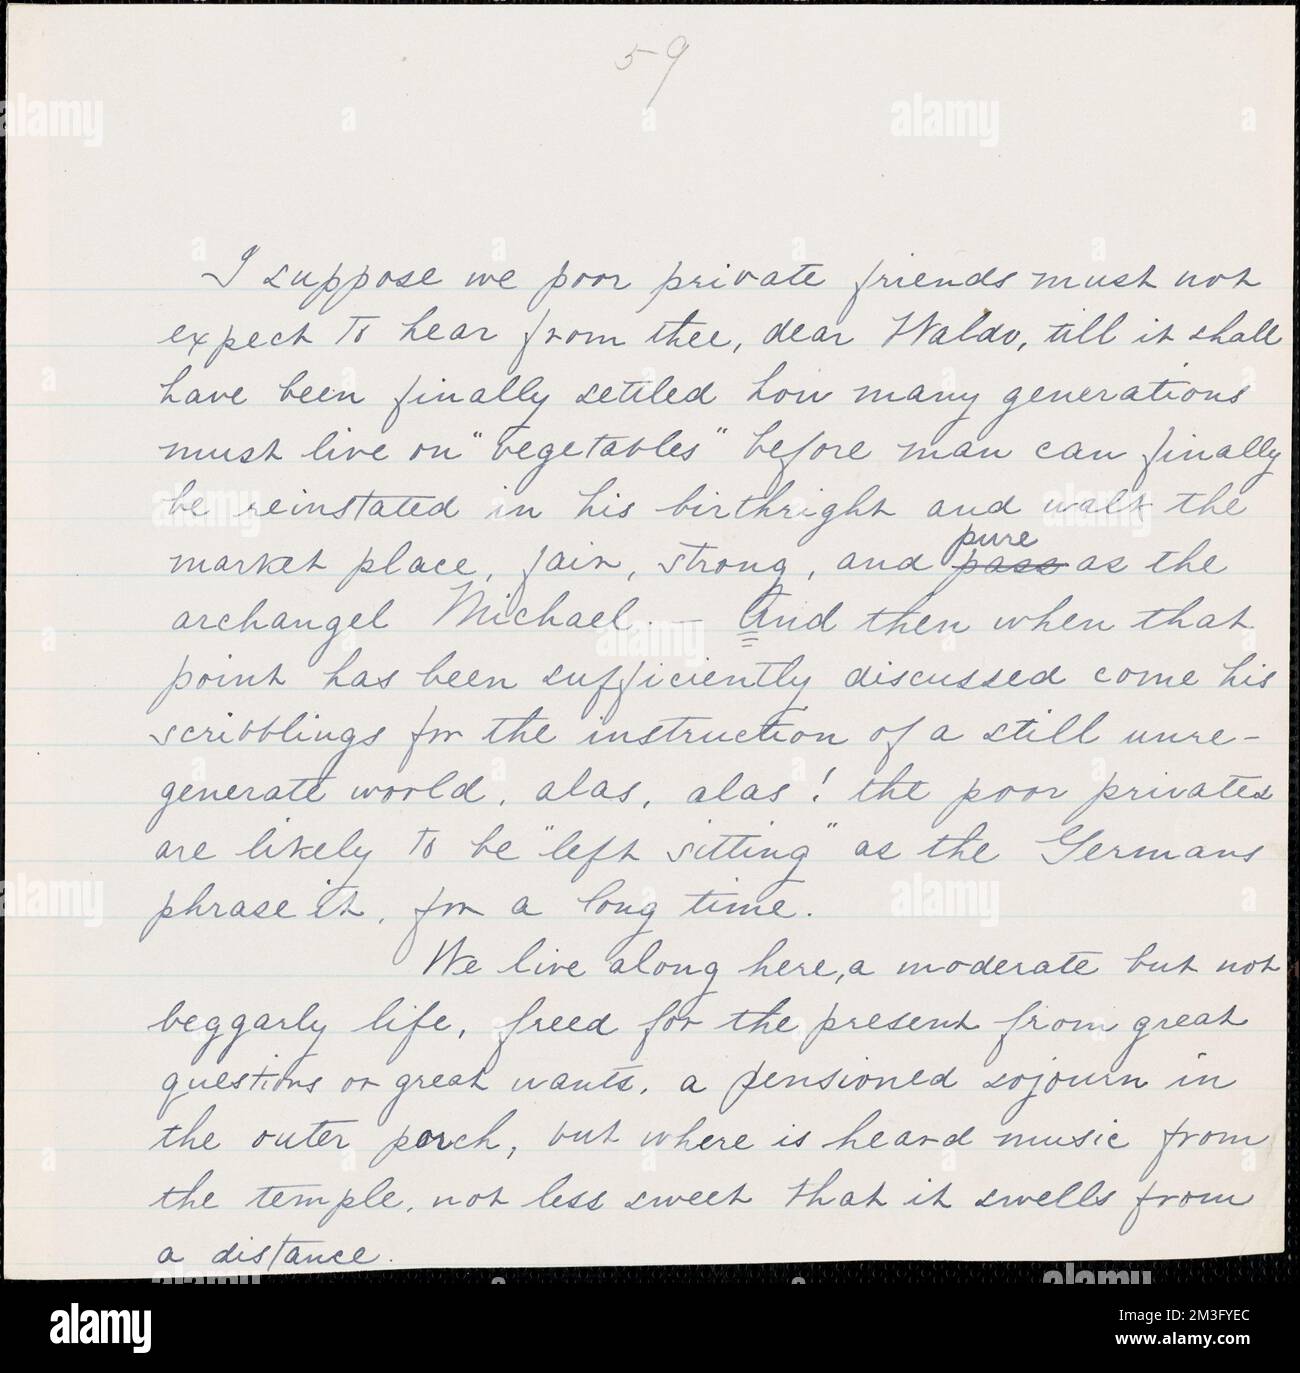 59
I suppose we poor private friends must not
expect to hear from thee, dear Waldo, till it shall
have been finally settled how many generations
must live on "vegetables" before man can finally
be reinstated in his birthright and walk the
pure
market place, fair, strong, and pass as the
archangel Michael. — And then when that
point has been sufficiently discussed come his
scribblings for the instruction of a still unre-
generate world, alas, alas! the poor privates
are likely to be "left sitting" as the Germans
phrase it, for a long time.
We live along here, a moderate but not
beggarly life, freed for the present from great
questions or great wants, a pensioned sojourn in
the outer porch, but where is heard music from
the temple, not less sweet that it swells from
a distance.
alamy
Image ID: 2M3FYEC
www.alamy.com